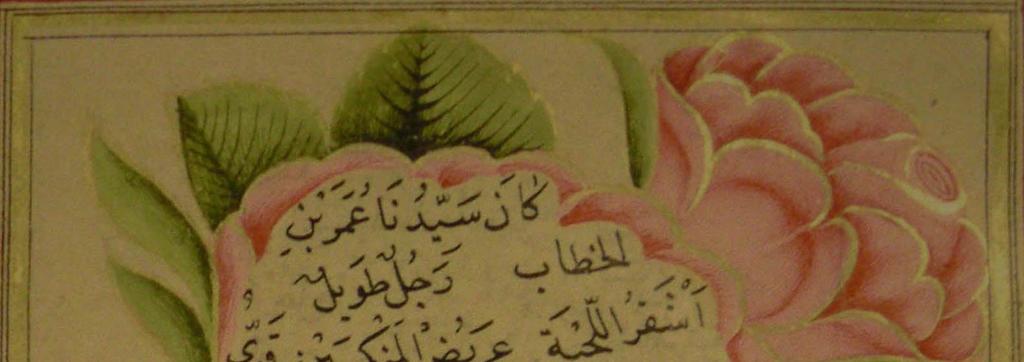 كَانَ سَيِّدُنَا عُمَرَبْنِ
الخطاب رَجُلٌ طَوِيلٌ
اَشْقَرُ اللِّحْيَةِ عَرِيضُ الْمَنْكِبَيْنِ قَوِيُّ